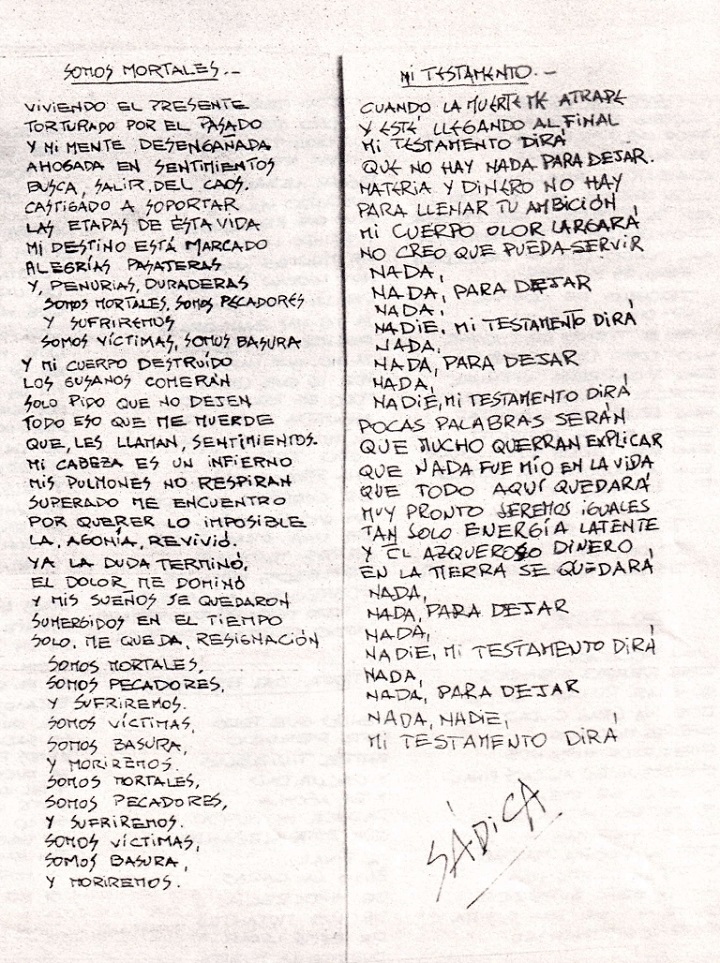 SOMOS MORTALES.-
VIVIENDO EL PRESENTE
TORTURADO POR EL PASADO
Y MI MENTE DESENGAÑADA
AHOGADA EN SENTIMIENTOS
BUSCA, SALIR, DEL CAOS.
CASTIGADO A SOPORTAR
LAS ETAPAS DE ÉSTA VIDA
MI DESTINO ESTÁ MARCADO
ALEGRÍAS PASATERAS
Y, PENURIAS, DURADERAS
SOMOS MORTALES, SOMOS PECADORES
Y SUFRIREMOS
SOMOS VÍCTIMAS, SOMOS BASURA
Y MI CUERPO DESTRUÍDO
LOS GUSANOS COMERÁN
SOLO PIDO QUE NO DEJEN
TODO ESO QUE ME MUERDE
QUE, LES LLAMAN, SENTIMIENTOS.
MI CABEZA ES UN INFIERNO
MIS PULMONES NO RESPIRAN
SUPERADO ME ENCUENTRO
POR QUERER LO IMPOSIBLE
LA, AGONÍA, REVIVIÓ.
YA LA DUDA TERMINÓ,
EL DOLOR ME DOMINÓ
Y MIS SUEÑOS SE QUEDARON
SUMERGIDOS EN EL TIEMPO
SOLO, ME QUEDA, RESIGNACIÓN
SOMOS MORTALES,
SOMOS PECADORES,
Y SUFRIREMOS.
SOMOS VÍCTIMAS,
SOMOS BASURA,
Y MORIREMOS.
SOMOS MORTALES,
SOMOS PECADORES,
Y SUFRIREMOS.
SOMOS VÍCTIMAS,
SOMOS BASURA,
Y MORIREMOS.
MI TESTAMENTO.-
CUANDO LA MUERTE ME ATRAPE
Y ESTÉ LLEGANDO AL FINAL
MI TESTAMENTO DIRÁ
QUE NO HAY NADA PARA DEJAR.
MATERIA Y DINERO NO HAY
PARA LLENAR TU AMBICIÓN,
MI CUERPO OLOR LARGARÁ
NO CREO QUE PUEDA SERVIR
NADA,
NADA, PARA DEJAR
NADA,
NADIE, MI TESTAMENTO DIRÁ
NADA,
NADA, PARA DEJAR
NADA,
NADIE, MI TESTAMENTO DIRÁ
POCAS PALABRAS SERÁN
QUE MUCHO QUERRAN EXPLICAR
QUE NADA FUE MÍO EN LA VIDA
QUE TODO AQUÍ QUEDARÁ
MUY PRONTO SEREMOS IGUALES
TAN SOLO ENERGÍA LATENTE
Y EL AZQUEROSO DINERO
EN LA TIERRA SE QUEDARÁ
NADA,
NADA, PARA DEJAR
NADA,
NADIE, MI TESTAMENTO DIRÁ
NADA,
NADA, PARA DEJAR
NADA, NADIE,
MI TESTAMENTO DIRÁ
SÁDICA